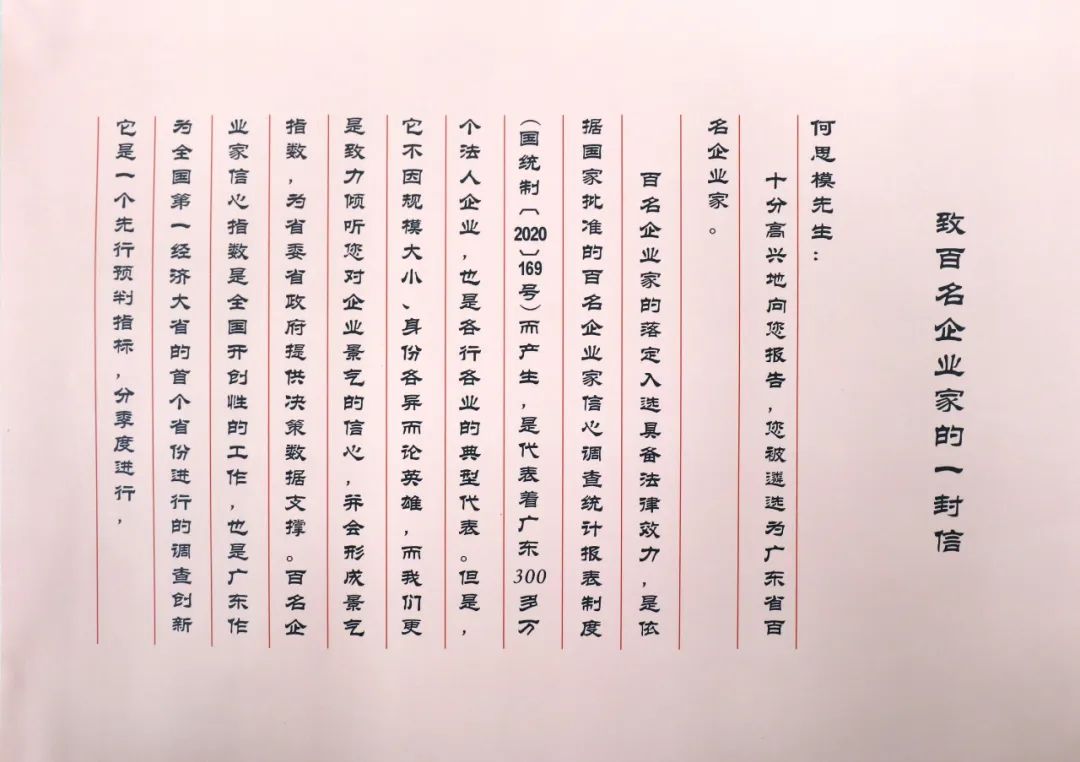 致百名企业家的一封信
何思模先生：
十分高兴地向您报告，您被遴选为广东省百
名企业家。
百名企业家的落定入选具备法律效力，是依
据国家批准的百名企业家信心调查统计报表制度
（国统制〔2020〕169号）而产生，是代表着广东300多万
个法人企业，也是各行各业的典型代表。但是，
它不因规模大小、身份各异而论英雄，而我们更
是致力倾听您对企业景气的信心，并会形成景气
指数，为省委省政府提供决策数据支撑。百名企
业家信心指数是全国开创性的工作，也是广东作
为全国第一经济大省的首个省份进行的调查创新
它是一个先行预判指标，分季度进行，